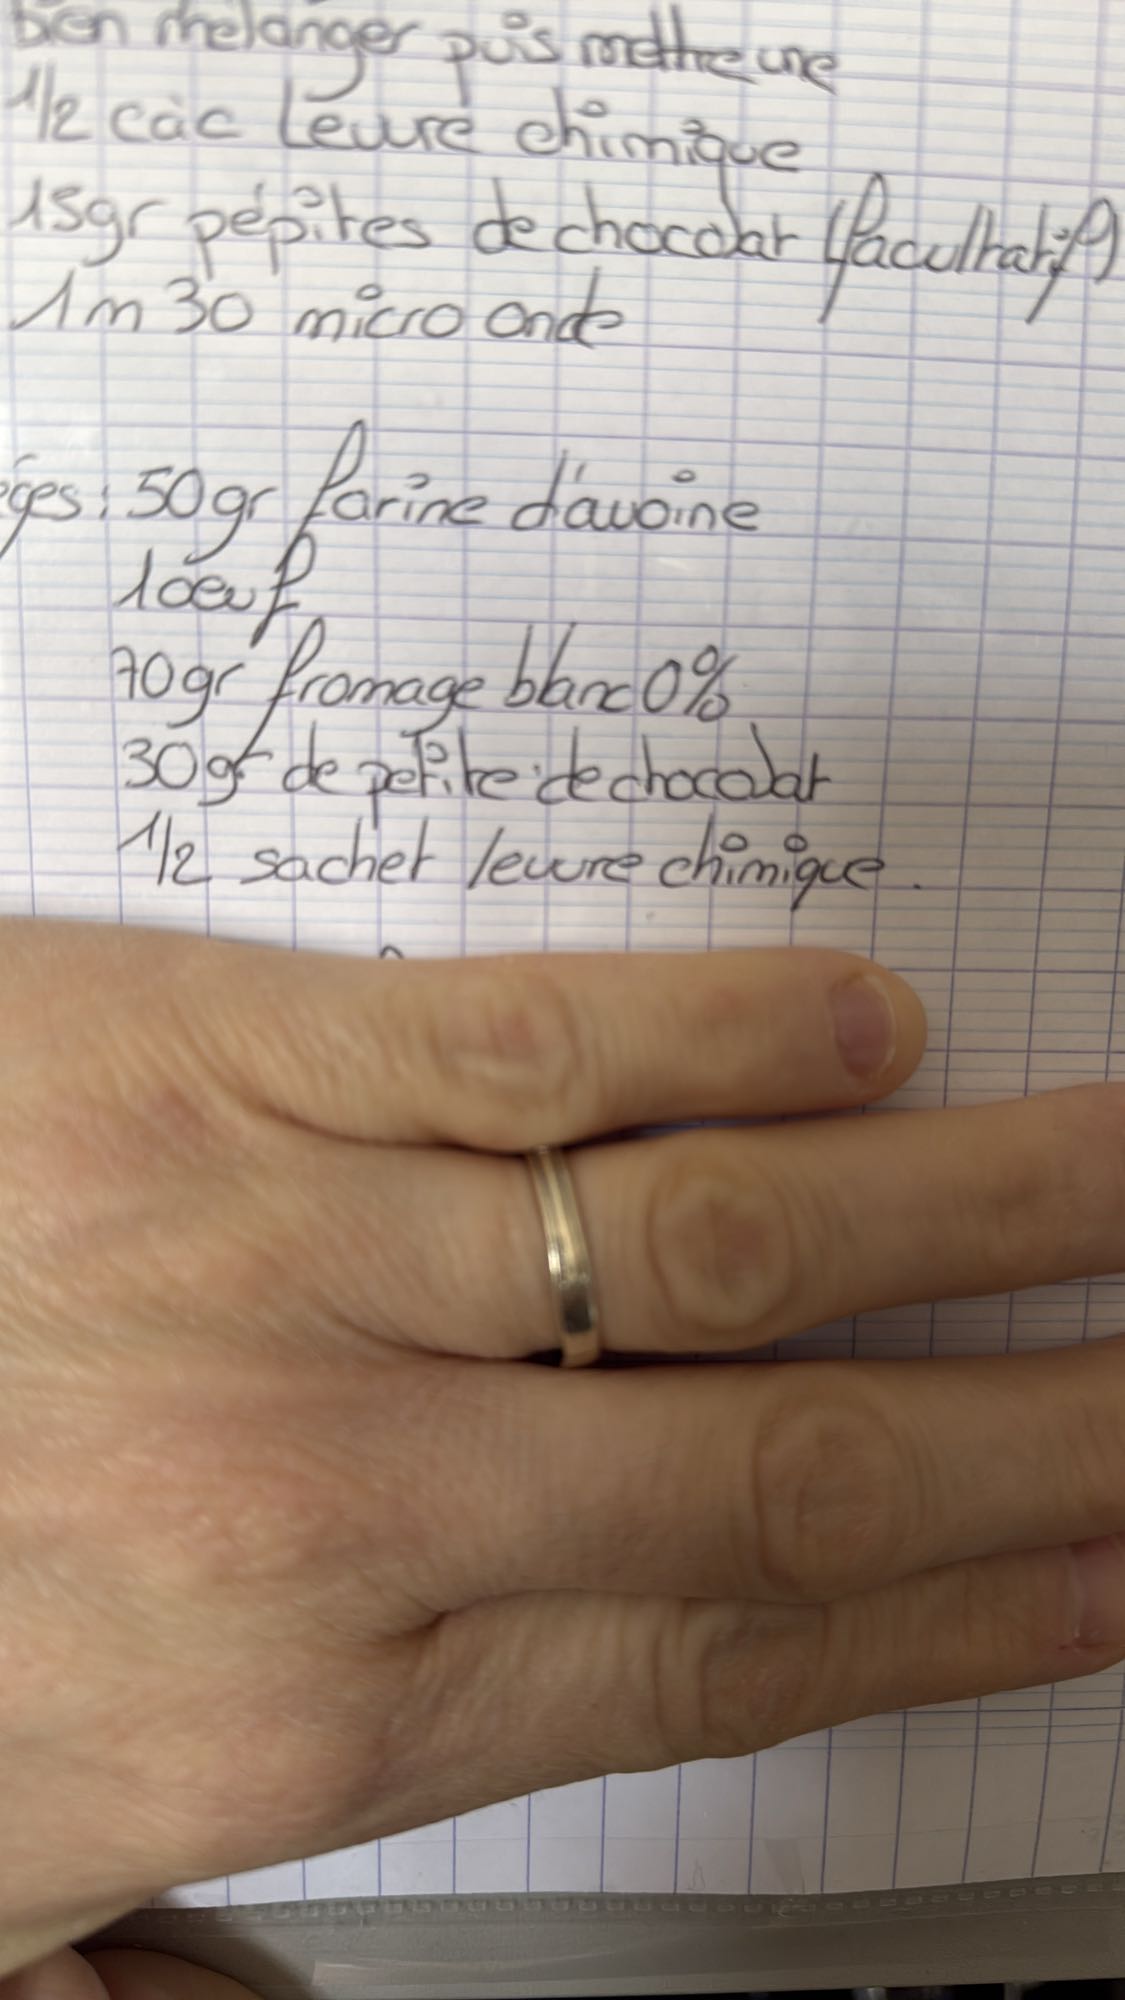 bien mélanger puis mettre une
1/2 càc Levure chimique
15gr pépites de chocolat (facultatif)
1m30 micro onde
50gr farine d'avoine
1 oeuf
70gr fromage blanc 0%
30gr de pepite de chocolat
1/2 sachet levure chimique.